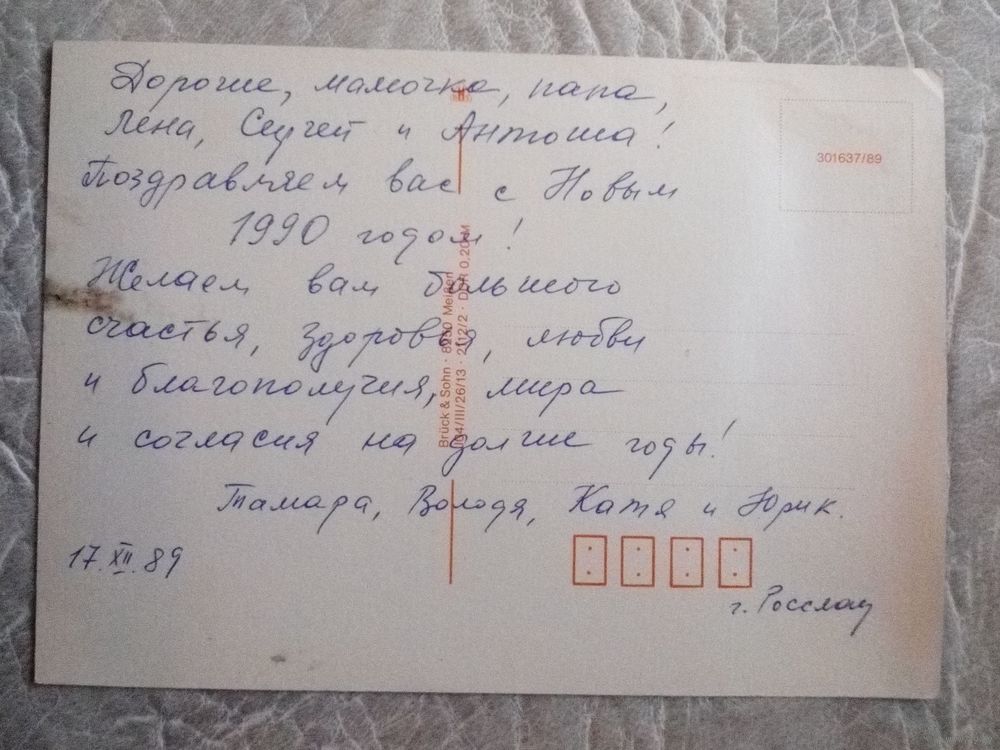 Дорогие, мамочка, папа,
Лена, Сергей и Антоша!
Поздравляем вас с Новым
1990 годом!
Желаем вам большого
счастья, здоровья, любви
и благополучия, мира
и согласия на долгие годы!
Тамара, Володя, Катя и Юрик.
17.XII.89
г. Росслау
301637/89
Brück & Sohn · 8250 Meißen
III/26/13 · 2112/2 · DDR 0,20 M